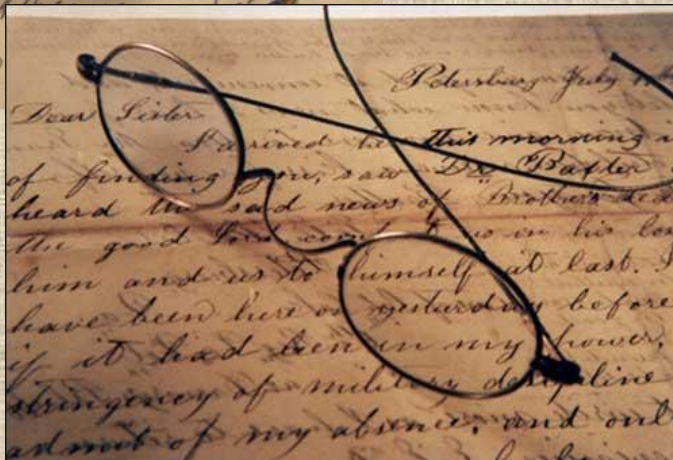 Petersburg July
Dear Sister
I arrived this morning
of finding you, saw Dr. Baxter
heard the sad news of Brother's
the good Lord in his
him and us to himself at last.
have been here on yesterday before
if it had been in my power,
stringency of military
admit of my absence, and